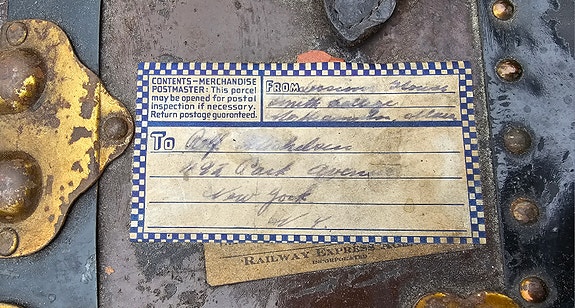 CONTENTS—MERCHANDISE
POSTMASTER: This parcel
may be opened for postal
inspection if necessary.
Return postage guaranteed.
FROM
Smith College
To
Park Aven
New York
N. Y.
RAILWAY EXPRESS
INCORPORATED